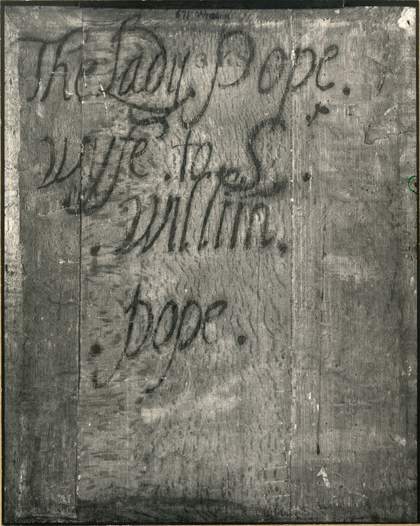 The Lady Pope.
wyfe to S.
willim.
pope.